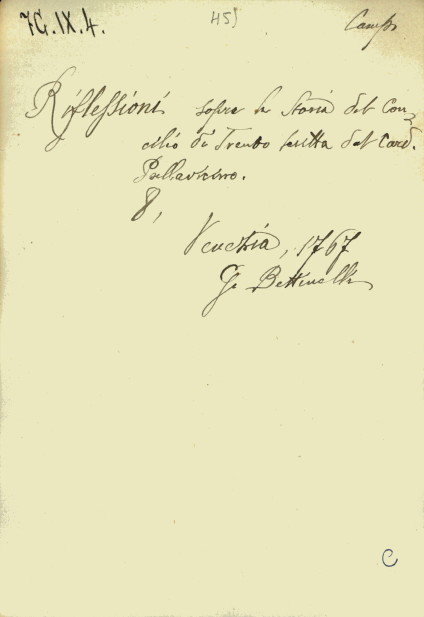 7G.IX.4. 45) Campo
Riflessioni sopra la Storia del Con-
cilio di Trento scritta dal Card.
Pallavicino.
8,
Venezia, 1767
G. Bettinelli
C